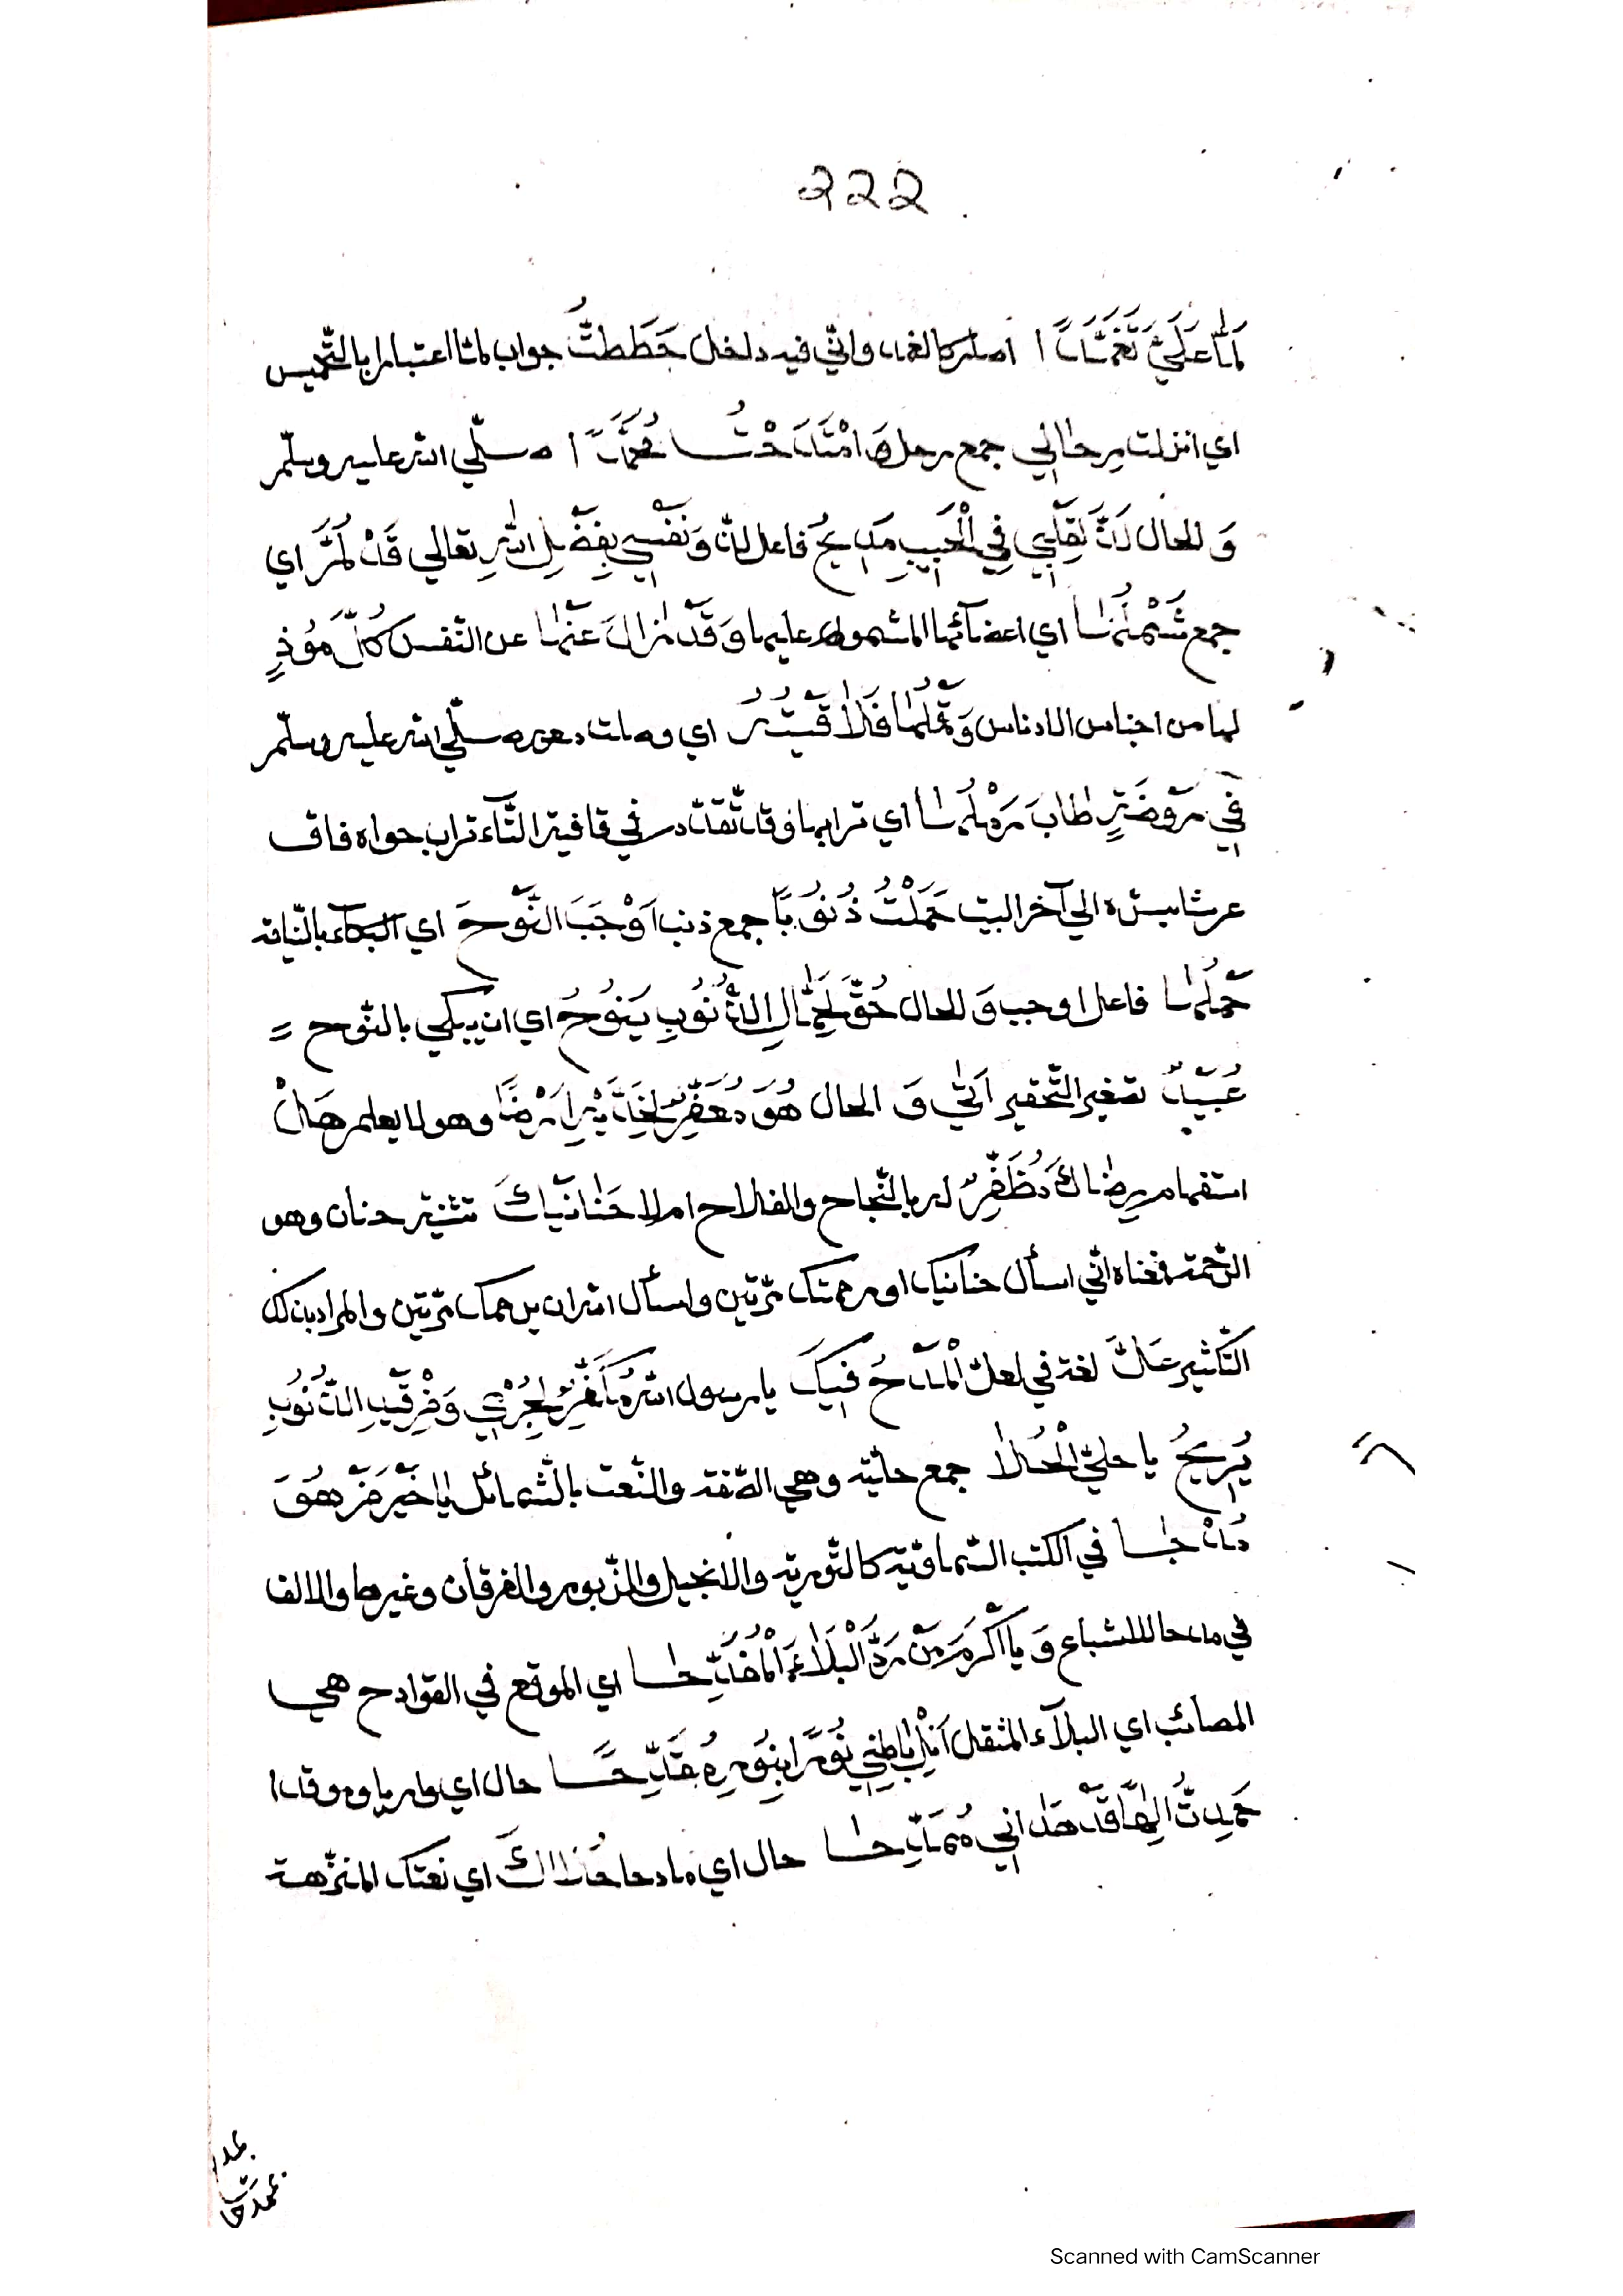 ٢٢٢
لَمَّا عَلَيَّ تَغَمَّدَا اصله كالغمد واني فيه داخل حَطَطتُّ جواب لما اعتباره بالتخميس
اي انزلت رِحَالِي جمع رحل مَا مْتَدَحْتُ مُحَمَّدًا صلّي الله عليه وسلّم
وَ الحال لَذَّ لِقَلْبِي فِي الْحَبِيبِ مَدِيحُ فاعل لذّ وَنَفْسِي بِفَضْلِ اللهِ تعالي قَدْ لُمَّ اي
جمع شَمْلُهَا اي اعضائها المشمولة عليها وَقَدْ زَالَ عَنْهَا عن النّفس كُلُّ مُوْذٍ
لها من اجناس الادناس وَ فَلَا اي صلّي الله عليه وسلّم
فِي رَوْضَةٍ طَابَ رَمْلُهَا اي ترابها وقد تقدّر في قافية التّآء تراب حواه فاق
عرشا الي آخر البيت حَمَلْتُ ذُنُوبًا جمع ذنب اَوْجَبَ النَّوْحَ اي البكآء بالنّياحة
حَمْلُهَا فاعل اوجب وَ الحال حُقَّ لِحَمَّالِ الذُّنُوبِ يَنُوحُ اي ان يبكي بالنّوح =
عُبَيْدٌ تصغير التّحقير اَتٰي وَ الحال هُوَ مُعَفِّرٌ لِخَدَّيْهِ اَرْضًا وهو لا يعلم هَلْ
استفهام بِرِضَاكَ مُظَفَّرٌ له بالنّجاح والفلاح ام لا حَنَانَيْكَ تثنية حنان وهو
الرّحمة فمعناه انّي اسأل حنانيك او رحمتك مرّتين واسأل الله ان يرحمك مرّتين والمراد بذلك
التّكثير عَلَّ لغة في لعلّ الْمَدْحُ فِيكَ يا رسول الله مُكَفِّرٌ لِجُرْمِي وَمِنْ قَيْدِ الذُّنُوبِ
يُرِيحُ يا حليّ الْحُلَا جمع حلية وهي الصّفة والنّعت بالشّمائل يَا خَيْرَ مَنْ هُوَ
مُدِحَا في الكتب السّماويّة كالتّورية والانجيل والزّبور والفرقان وغيرها والالف
في مدحا للاشباع وَ يَا اَكْرَمَ مَنْ رَدَّ الْبَلَاءَ الْمُفَدِّحَا اي الموقع في القوادح هي
المصائب اي البلآء المثقل اَنِلْ بَاطِنِي نُورًا بِنُورِهِ مُقَدِّحًا حال اي واريا وموقدا
حَمِدتُّ اِلٰهًا قَدْ هَدَانِي مُمَدِّحًا حال اي مادحا حُلَاكَ اي نعتك المنزّهة
Scanned with CamScanner